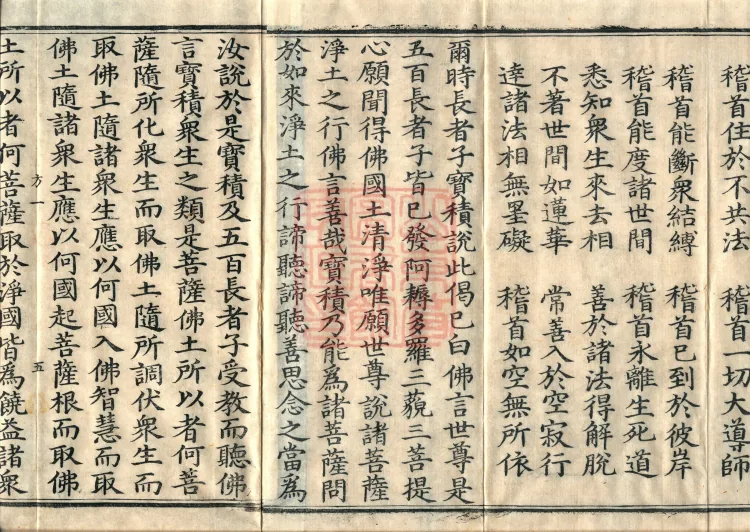 稽首住於不共法　稽首一切大導師
稽首能斷衆結縛　稽首已到於彼岸
稽首能度諸世間　稽首永離生死道
悉知衆生來去相　善於諸法得解脫
不著世間如蓮華　常善入於空寂行
達諸法相無罣礙　稽首如空無所依
爾時長者子寶積說此偈已白佛言世尊是
五百長者子皆已發阿耨多羅三藐三菩提
心願聞得佛國土清淨唯願世尊說諸菩薩
淨土之行佛言善哉寶積乃能爲諸菩薩問
於如來淨土之行諦聽諦聽善思念之當爲
汝說於是寶積及五百長者子受教而聽佛
言寶積衆生之類是菩薩佛土所以者何菩
薩隨所化衆生而取佛土隨所調伏衆生而
取佛土隨諸衆生應以何國入佛智慧而取
佛土隨諸衆生應以何國起菩薩根而取佛
方一　五
土所以者何菩薩取於淨國皆爲饒益諸衆